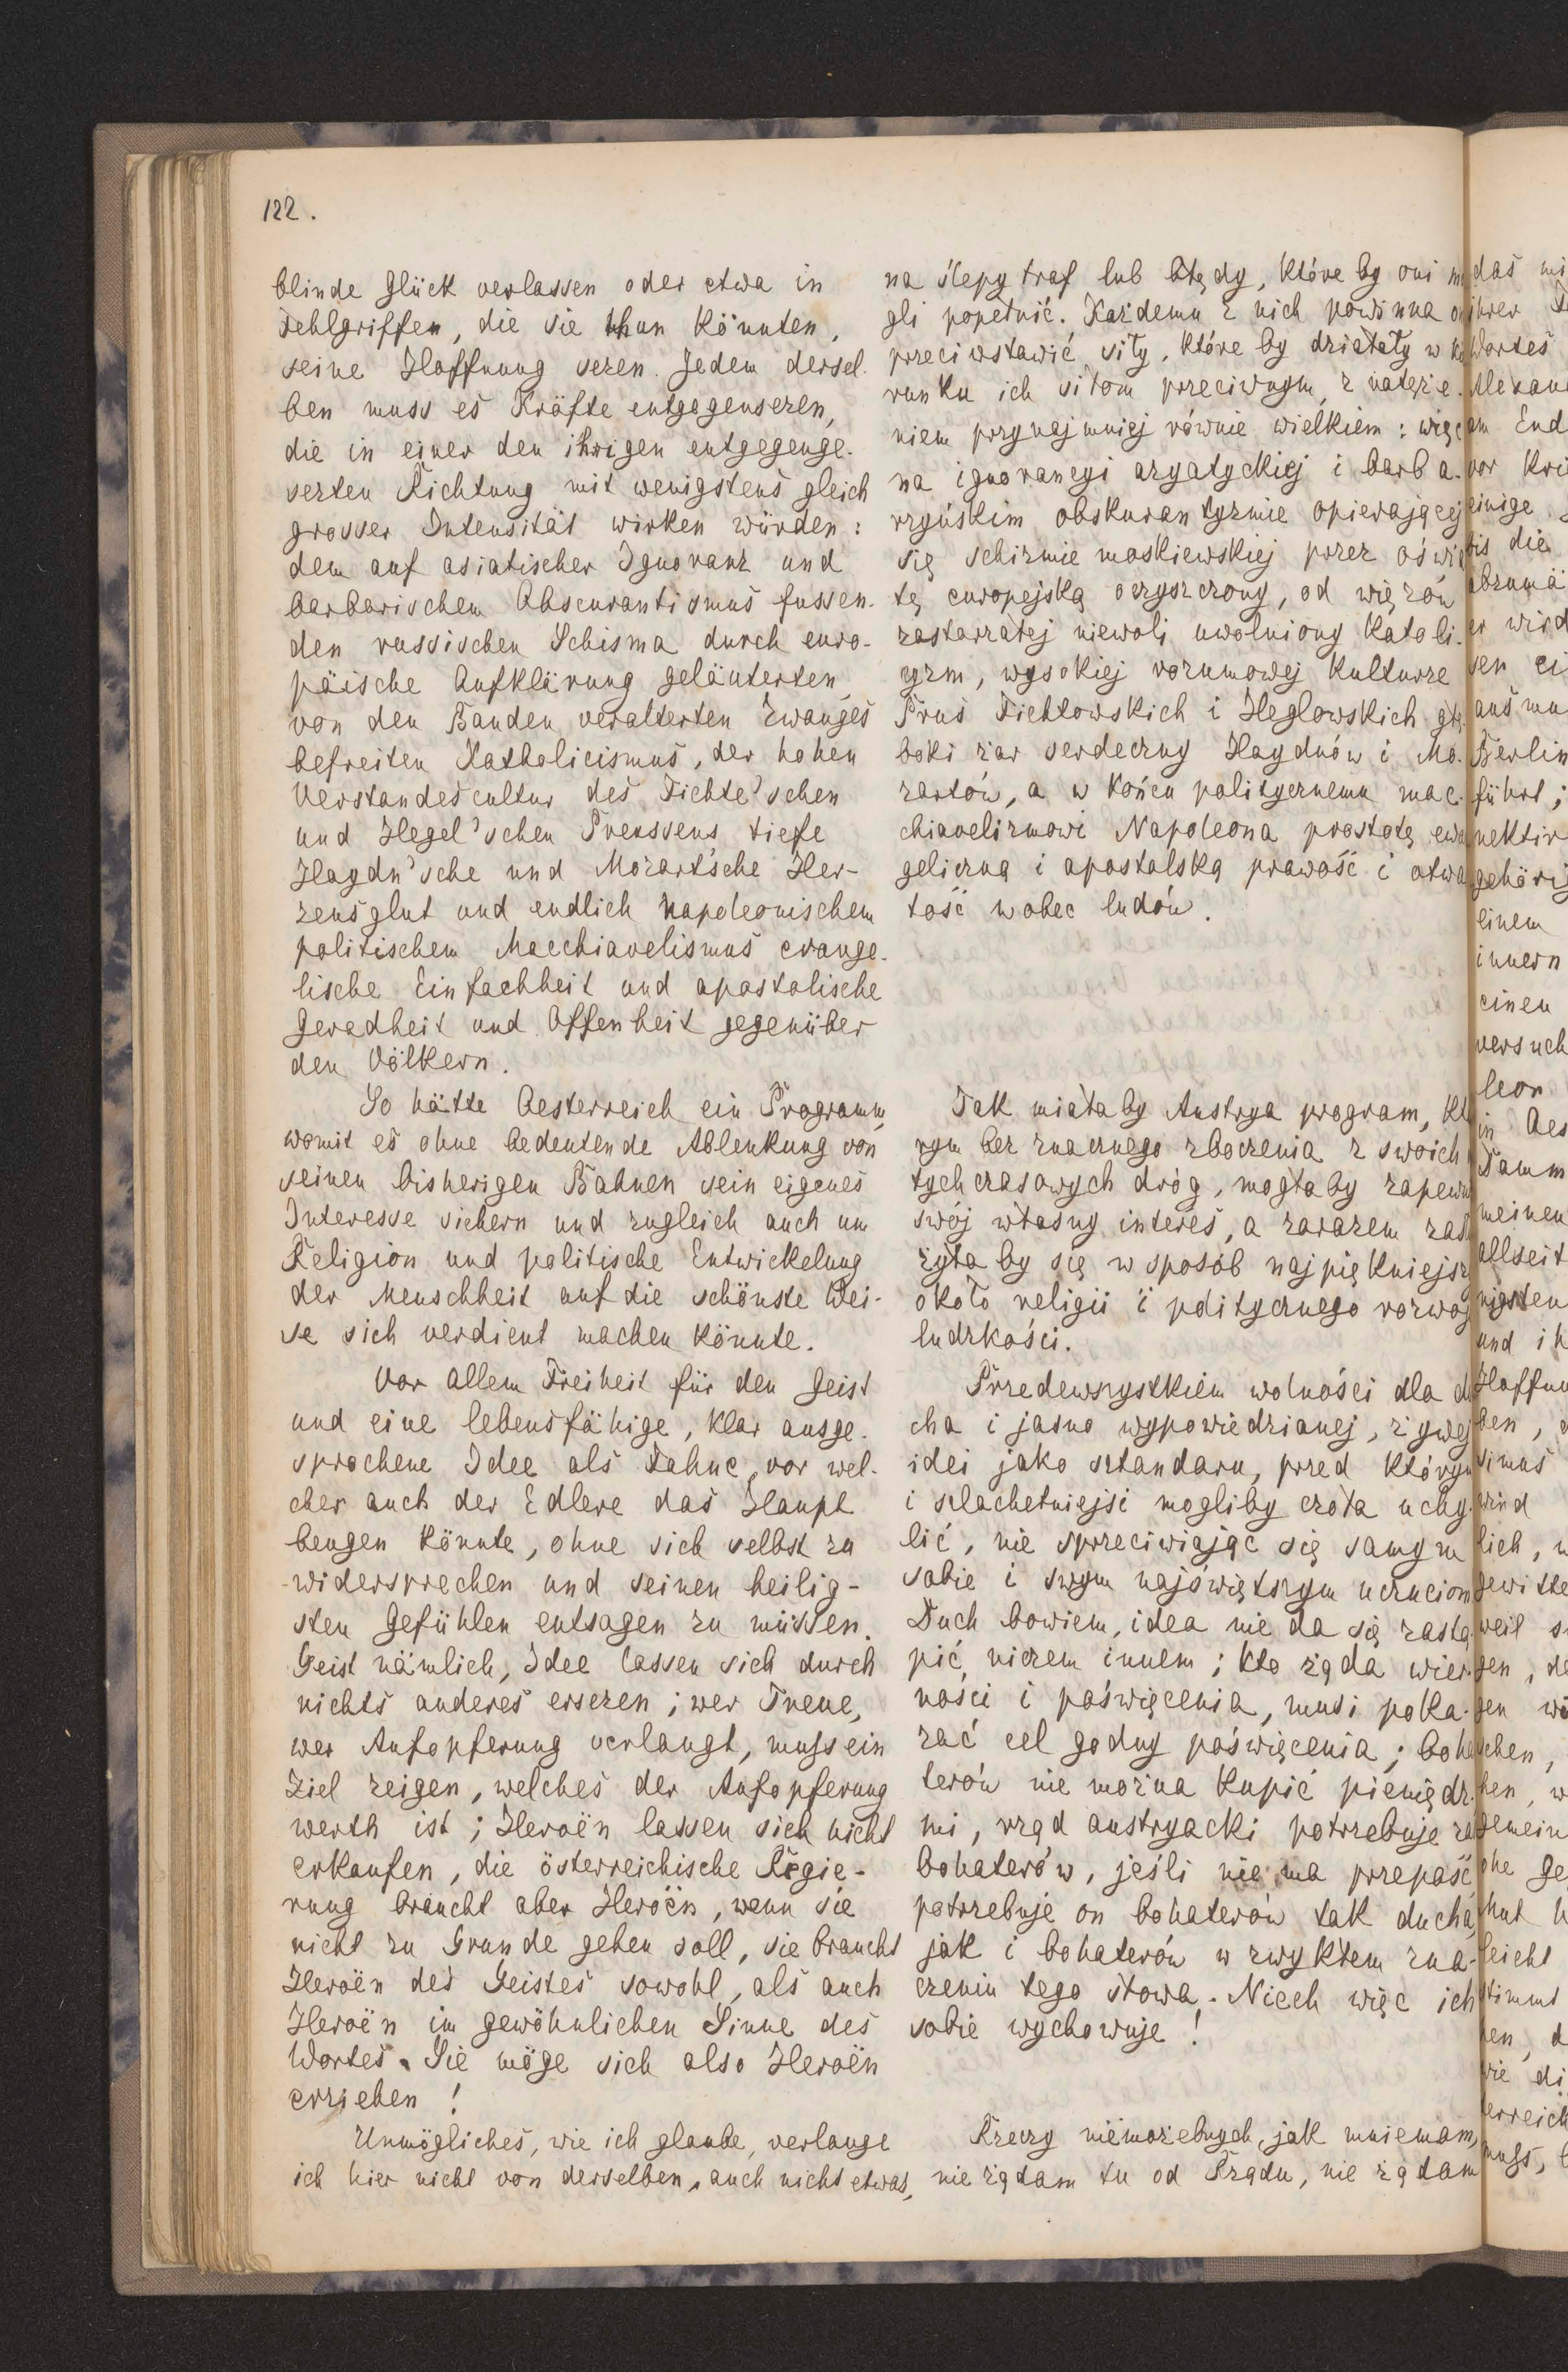 122.
blinde Glück verlassen oder etwa in
Fehlgriffen, die sie thun könnten,
seine Hoffnung sezen. Jedem dersel-
ben muss es Kräfte entgegensezen,
die in einer den ihrigen entgegenge-
sezten Richtung mit wenigstens gleich
grosser Intensität wirken würden:
dem auf asiatischer Ignoranz und
barbarischem Obscurantismus fussen-
den russischen Schisma durch euro-
päische Aufklärung geläuterten,
von den Banden veralterten Zwanges
befreiten Katholicismus, der hohen
Verstandescultur des Fichte'schen
und Hegel'schen Preussens tiefe
Haydn'sche und Mozart'sche Her-
zensglut und endlich Napoleonischem
politischem Macchiavelismus evange-
lische Einfachheit und apostolische
Geradheit und Offenheit gegenüber
den Völkern.
So hätte Oesterreich ein Programm,
womit es ohne bedeutende Ablenkung von
seinen bisherigen Bahnen sein eigenes
Interesse sichern und zugleich auch um
Religion und politische Entwickelung
der Menschheit auf die schönste Wei-
se sich verdient machen könnte.
Vor allem Freiheit für den Geist
und eine lebensfähige, klar ausge-
sprochene Idee als Fahne, vor wel-
cher auch der Edlere das Haupt
beugen könnte, ohne sich selbst zu
widersprechen und seinen heilig-
sten Gefühlen entsagen zu müssen.
Geist nämlich, Idee lassen sich durch
nichts anderes ersezen; wer Treue,
wer Aufopferung verlangt, muss ein
Ziel zeigen, welches der Aufopferung
werth ist; Heroën lassen sich nicht
erkaufen, die österreichische Regie-
rung braucht aber Heroën, wenn sie
nicht zu Grunde gehen soll, sie braucht
Heroën des Geistes sowohl, als auch
Heroën im gewöhnlichen Sinne des
Wortes. Sie möge sich also Heroën
erziehen!
Unmögliches, wie ich glaube, verlange
ich hier nicht von derselben, auch nicht etwas,
na ślepy traf lub błędy, które by oni mo
gli popełnić. Każdemu z nich powinna
przeciwstawić siły, które by działały w
runku ich siłom przeciwnym, z natęże-
niem przynajmniej równie wielkiem: więc
na ignorancyi azyatyckiej i barba-
rzyńskim obskurantyzmie opierającej
się schizmie moskiewskiej przez oświa
tę europejską oczyszczony, od więzów
zastarzałej niewoli uwolniony katoli-
cyzm, wysokiej rozumowej kulturze
Prus Fichtowskich i Heglowskich głę-
boki żar serdeczny Haydnów i Mo-
zartów, a w końcu politycznemu mac-
chiavelizmowi Napoleona prostotę ewa
geliczną i apostolską prawość i otwa
tość wobec ludów.
Tak miałaby Austrya program, któ
rym bez znacznego zboczenia z swoich
tychczasowych dróg, mogłaby zapewn
swój własny interes, a zarazem zasłu
żyłaby się w sposób najpiękniejsz
około religii i politycznego rozwoj
ludzkości.
Przedewszystkiem wolności dla du
cha i jasno wypowiedzianej, żywej
idei jako sztandaru, przed którym
i szlachetniejsi mogliby czoła uchy-
lić, nie sprzeciwiając się samym
sobie i swym najświętszym uczuciom
Duch bowiem, idea nie da się zastą-
pić niczem innem; kto żąda wier-
ności i poświęcenia, musi poka-
zać cel godny poświęcenia; boha
terów nie można kupić pieniędz-
mi, rząd austryacki potrzebuje zaś
bohaterów, jeśli nie ma przepaść
potrzebuje on bohaterów tak ducha,
jak i bohaterów w zwykłem zna-
czeniu tego słowa. Niech więc ich
sobie wychowuje!
Rzeczy niemożebnych, jak mniemam,
nie żądam tu od Rządu, nie żądam
das
ihrer
Wortes
am End
vor
einige
bis die
er wird
sen
Berlin
führt;
gehörig
einem
innern
einen
versuch
leon
in Oes
meinen
allseit
und
Hoffnu
ben,
wird
lich,
weil
gen,
gemein
leicht
stimmt
wie di